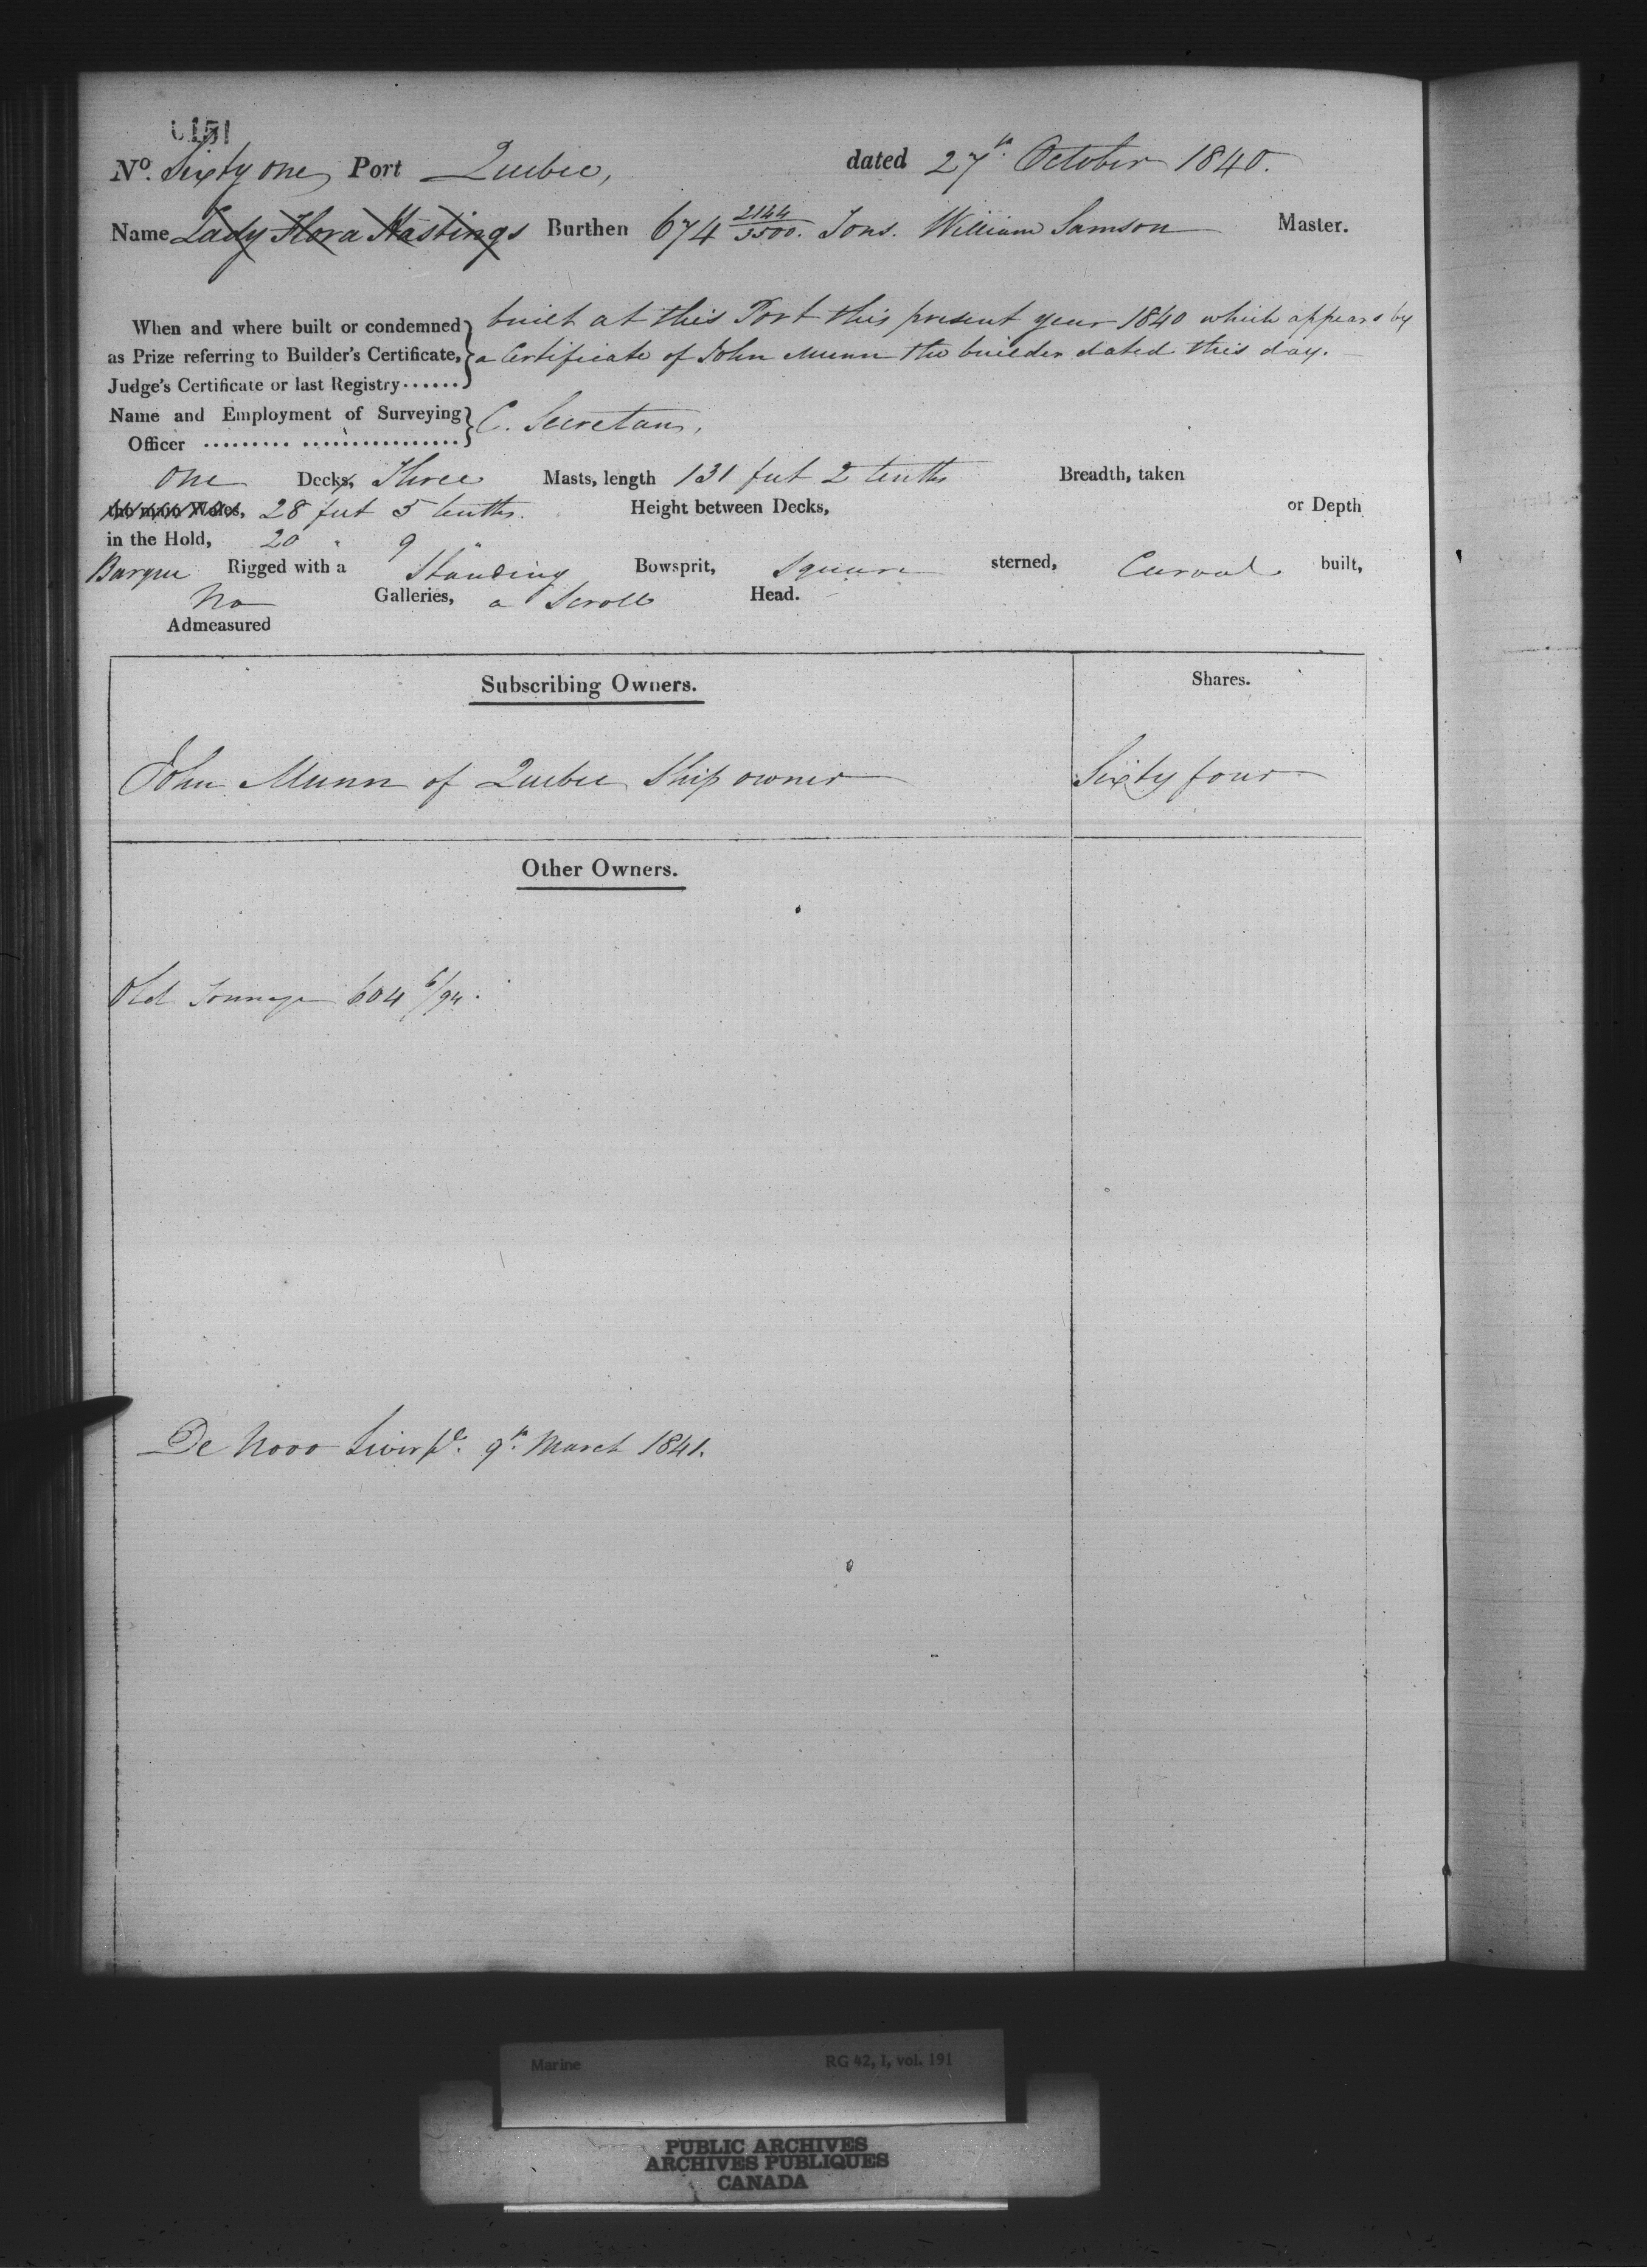 0151
No. Sixty one Port Quebec, dated 27th October 1840.
Name Lady Flora Hastings Burthen 674 2144/3500. Tons. William Samson Master.
When and where built or condemned built at this Port this present year 1840 which appears by
as Prize referring to Builder's Certificate, a Certificate of John Munn the builder dated this day.
Judge's Certificate or last Registry......
Name and Employment of Surveying C. Secretan,
Officer ......... ................
One Decks, Three Masts, length 131 feet 2 tenths Breadth, taken
the main Wales, 28 feet 5 tenths. Height between Decks, or Depth
in the Hold, 20 " 9 "
Barque Rigged with a Standing Bowsprit, Square sterned, Carvel built,
No Galleries, a Scroll Head.
Admeasured
Subscribing Owners. Shares.
John Munn of Quebec Ship owner Sixty four
Other Owners.
Old Tonnage 604 6/94.
De Novo Liverpl. 9th March 1841.
Marine RG 42, I, vol. 191
PUBLIC ARCHIVES
ARCHIVES PUBLIQUES
CANADA